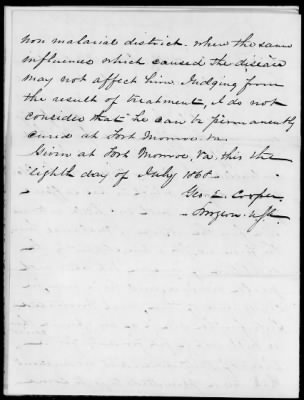 non malarial district. when the same
influences which caused the disease
may not affect him. Judging from
the result of treatment, I do not
consider that he can be permanently
cured at Fort Monroe, Va.
Given at Fort Monroe, Va. this the
eighth day of July 1868
Geo. E. Cooper
Surgeon USA